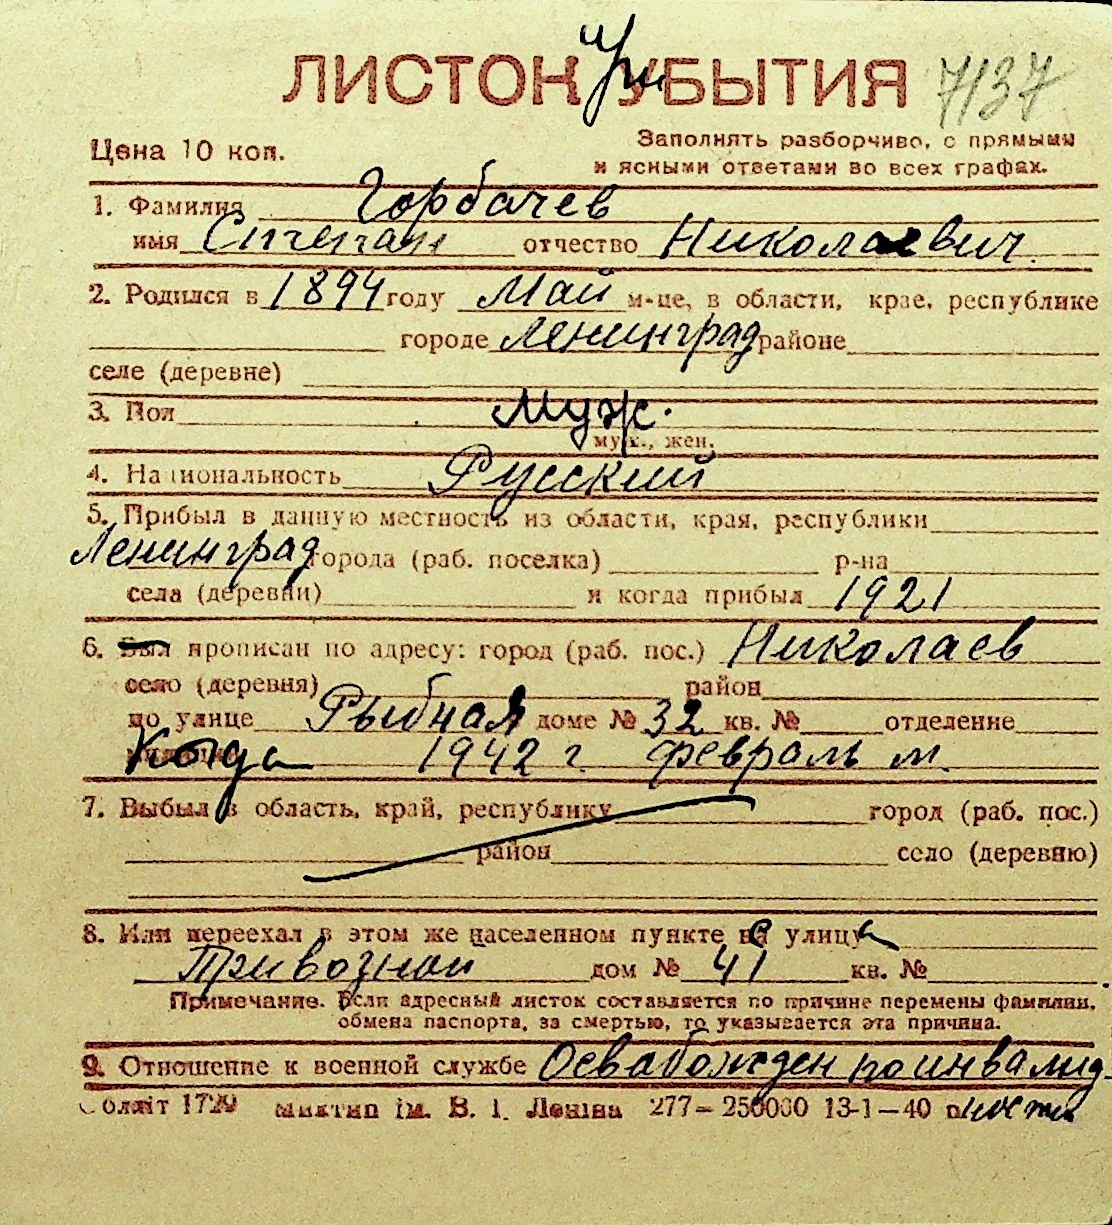 ЛИСТОК УБЫТИЯ 7137
Цена 10 коп.
Заполнять разборчиво, с прямыми
и ясными ответами во всех графах.
1. Фамилия Горбачев
имя Степан отчество Николаевич.
2. Родился в 1894 году Май м-це, в области, крае, республике
городе Ленинград районе
селе (деревне)
3. Пол Муж.
муж., жен.
4. Национальность Русский
5. Прибыл в данную местность из области, края, республики
Ленинград города (раб. поселка) р-на
села (деревни) и когда прибыл 1921
6. Был прописан по адресу: город (раб. пос.) Николаев
село (деревня) район
по улице Рыбная доме № 32 кв. № отделение
Когда 1942 г. февраль м.
7. Выбыл в область, край, республику город (раб. пос.)
район село (деревню)
8. Или переехал в этом же населенном пункте с улицы
Привозной дом № 41 кв. №
Примечание. Если адресный листок составляется по причине перемены фамилии,
обмена паспорта, за смертью, то указывается эта причина.
9. Отношение к военной службе Освабожден по инвалид-
ности
Облліт 1729 Миктип ім. В. І. Леніна 277—250000 13-1—40